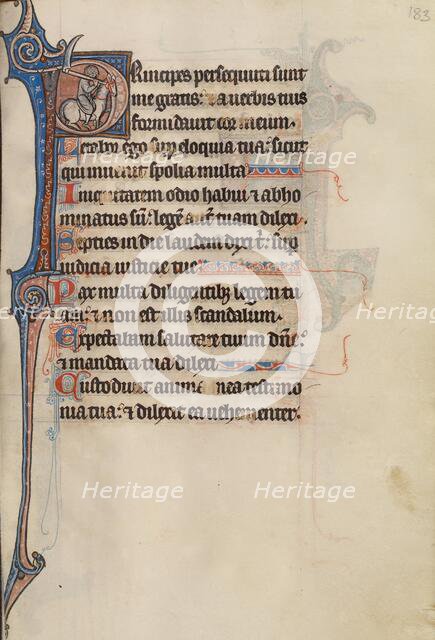 183
Principes persequuti sunt
me gratis: & a verbis tuis
formidavit cor meum.
Letabor ego super eloquia tua: sicut
qui invenit spolia multa
Iniquitatem odio habui & abho
minatus sū: legē autē tuam dilexi.
Septies in die laudem dixi t': sup
iudicia iusticie tue
Pax multa diligentibus legem tu
am: & non est illis scandalum.
Expectabam salutare tuum dn̄e:
& mandata tua dilexi
Custodivit anima mea testimo
nia tua: & dilexit ea vehementer.
Heritage Heritage Heritage
Heritage Heritage Heritage
Heritage Heritage Heritage